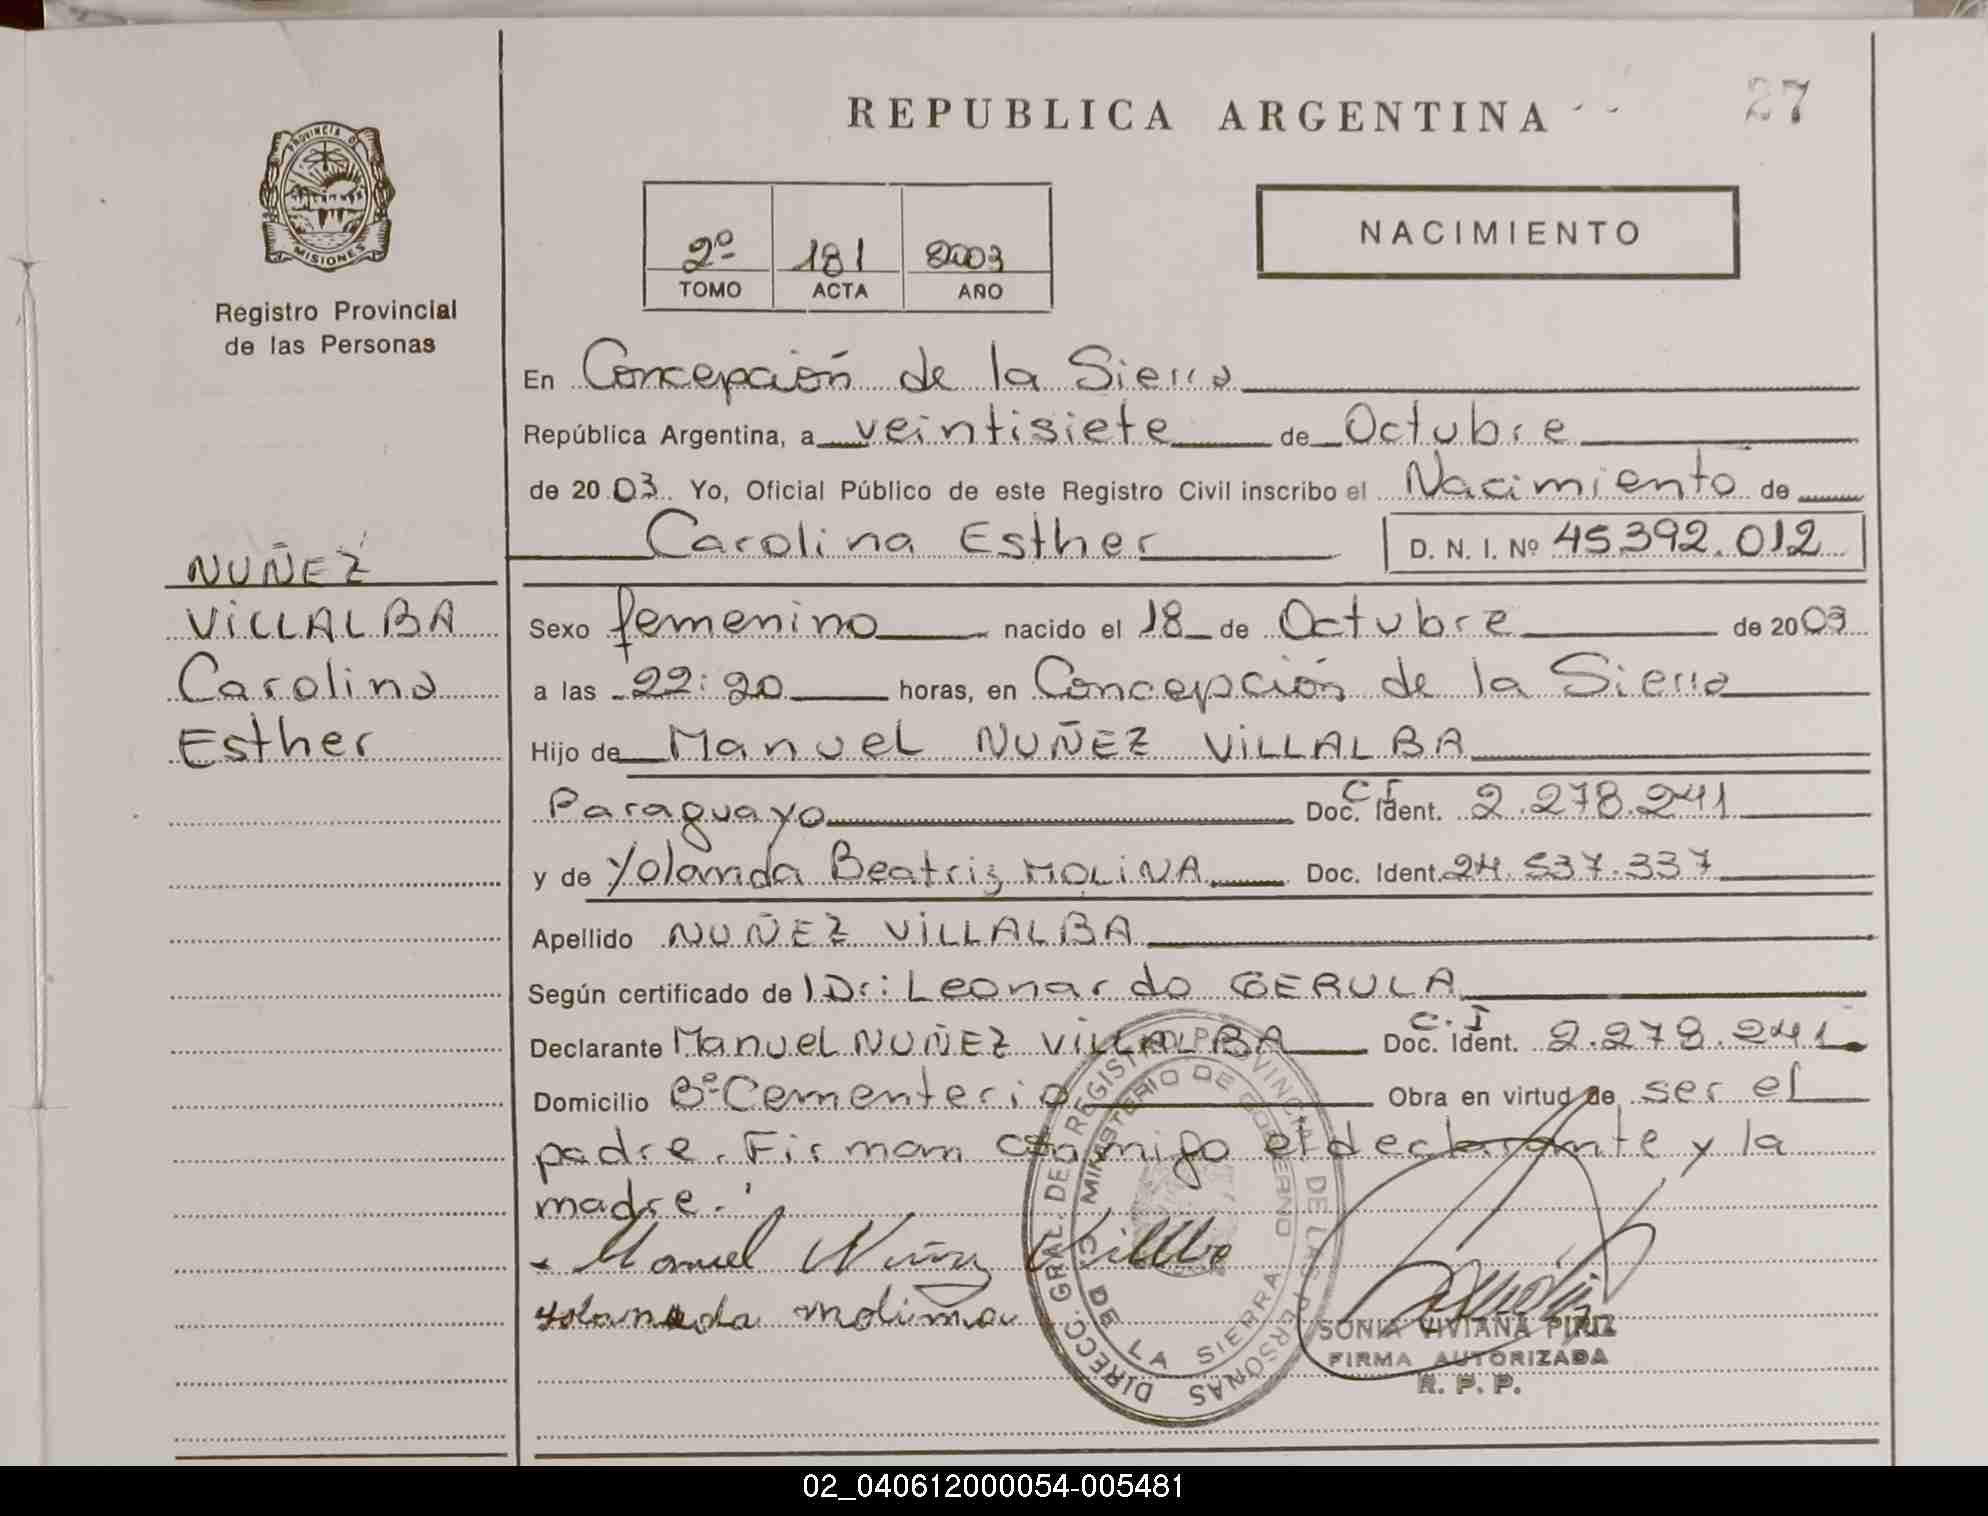 REPUBLICA ARGENTINA
27
PROVINCIA DE
MISIONES
Registro Provincial
de las Personas
2º 181 2003
TOMO ACTA AÑO
NACIMIENTO
En Concepción de la Sierra
República Argentina, a veintisiete de Octubre
de 2003 Yo, Oficial Público de este Registro Civil inscribo el Nacimiento de
Carolina Esther D. N. I. Nº 45392.012
NUÑEZ
VILLALBA
Carolina
Esther
Sexo femenino nacido el 18 de Octubre de 2003
a las 22:20 horas, en Concepción de la Sierra
Hijo de Manuel NUÑEZ VILLALBA
Paraguayo C.I Doc. Ident. 2.278.241
y de Yolanda Beatriz MOLINA Doc. Ident. 24.537.337
Apellido NUÑEZ VILLALBA
Según certificado de Dr: Leonardo GERULA
Declarante Manuel NUÑEZ VILLALBA C.I Doc. Ident. 2.278.241
Domicilio Bº Cementerio Obra en virtud de ser el
padre. Firman conmigo el declarante y la
madre.
Manuel Núñez Villalba
Yolanda Molina
DIRECC. GRAL. DE REGISTRO PROVINCIAL DE LAS PERSONAS
MINISTERIO DE GOBIERNO
C. DE LA SIERRA
SONIA VIVIANA PIRIZ
FIRMA AUTORIZADA
R. P. P.
02_040612000054-005481